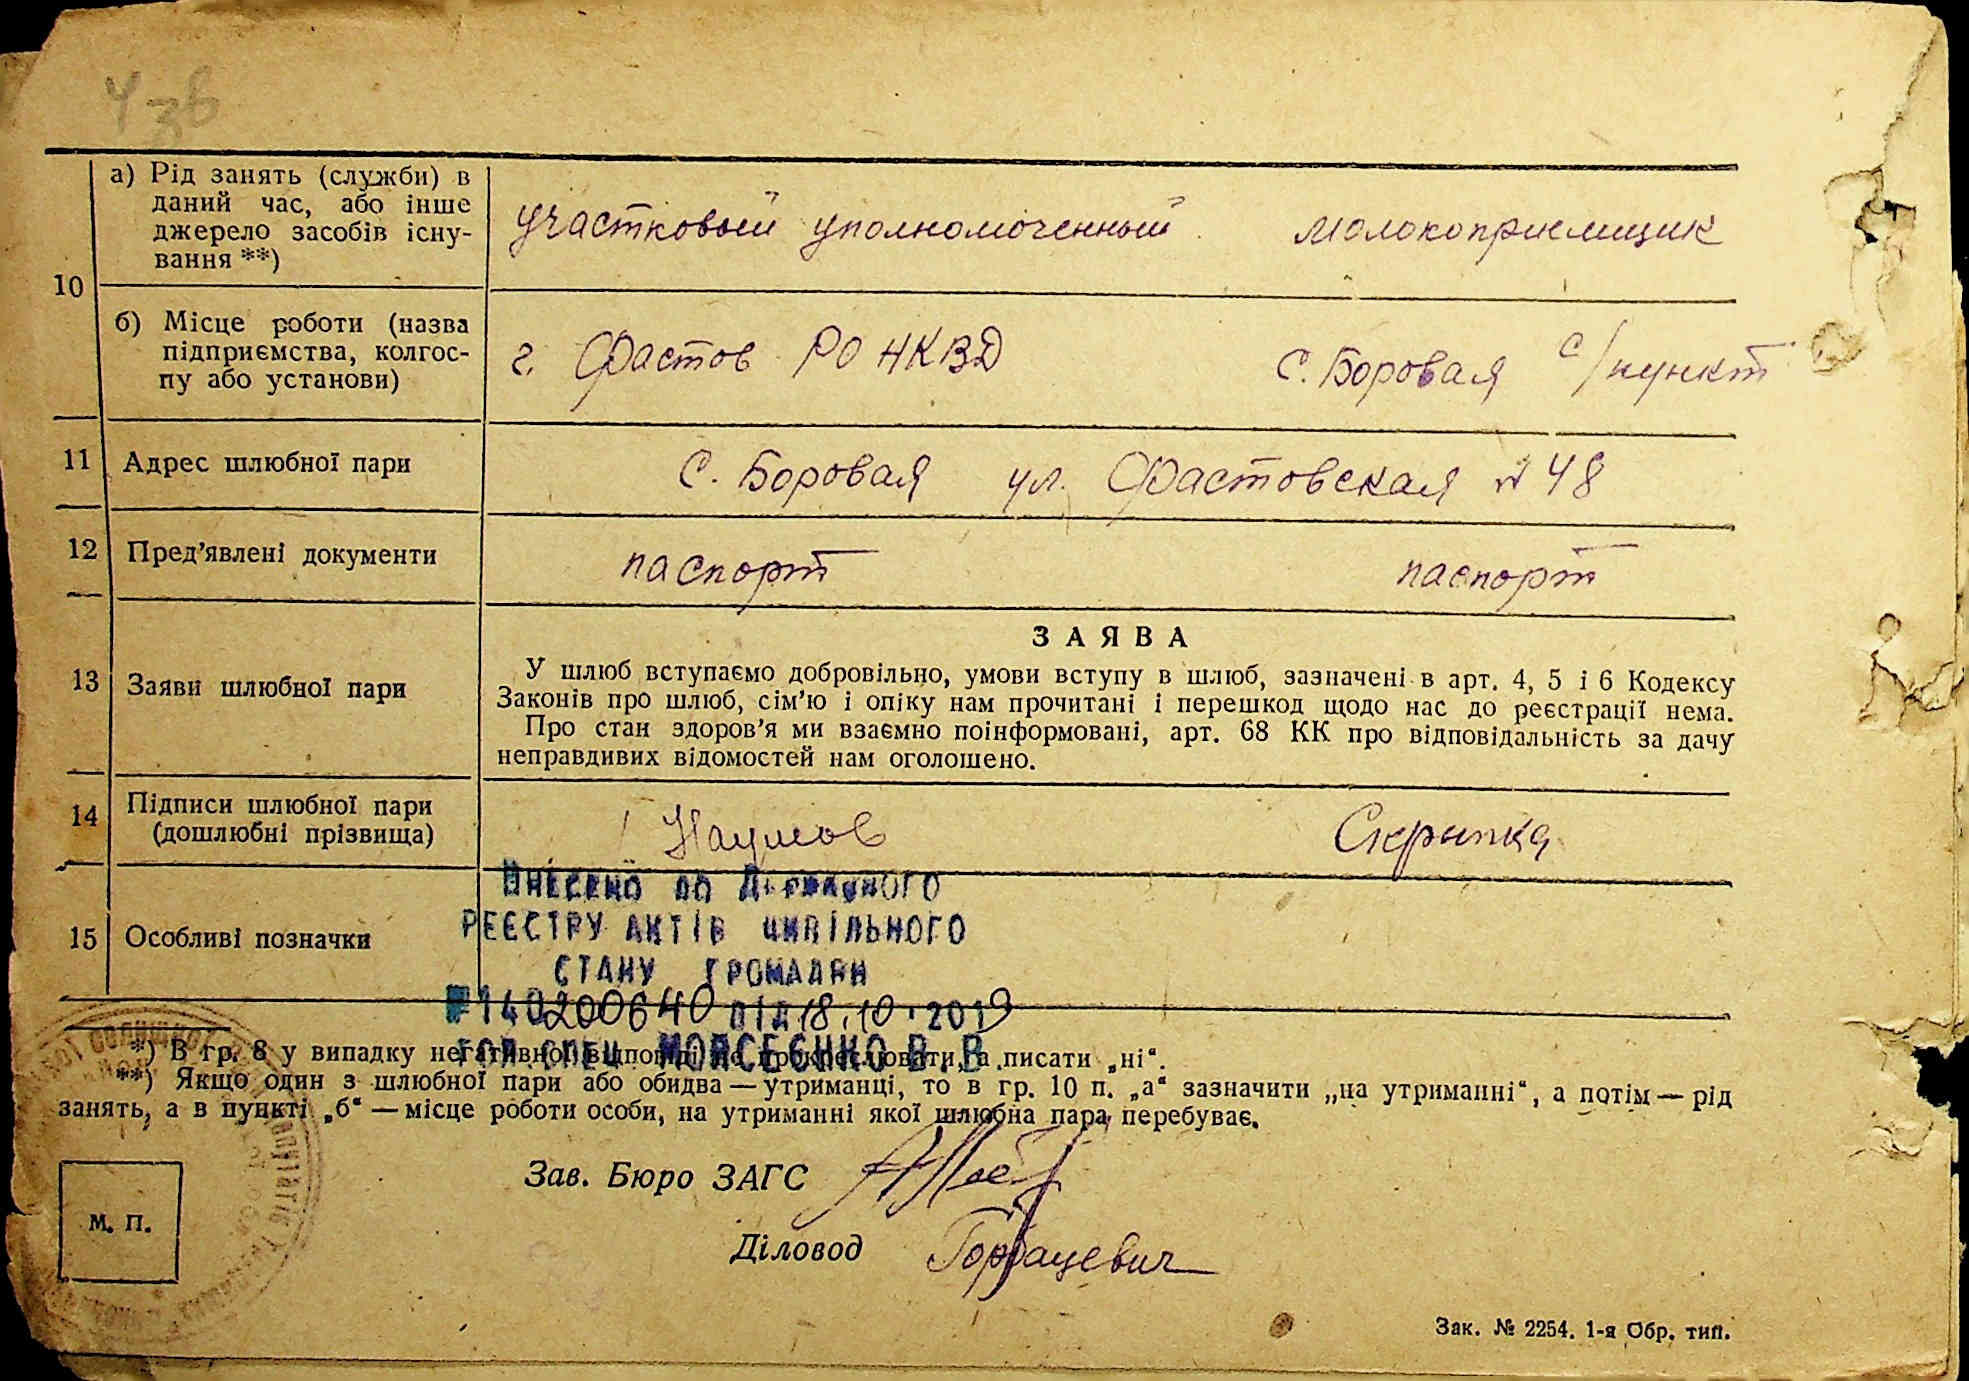 436
10
а) Рід занять (служби) в
даний час, або інше
джерело засобів існу-
вання **)
участковый уполномоченный молокоприемщик
б) Місце роботи (назва
підприємства, колгос-
пу або установи)
г. Фастов РО НКВД с. Боровая с/пункт
11 Адрес шлюбної пари с. Боровая ул. Фастовская № 48
12 Пред’явлені документи паспорт паспорт
13 Заяви шлюбної пари
ЗАЯВА
У шлюб вступаємо добровільно, умови вступу в шлюб, зазначені в арт. 4, 5 і 6 Кодексу
Законів про шлюб, сім’ю і опіку нам прочитані і перешкод щодо нас до реєстрації нема.
Про стан здоров’я ми взаємно поінформовані, арт. 68 КК про відповідальність за дачу
неправдивих відомостей нам оголошено.
14 Підписи шлюбної пари
(дошлюбні прізвища)
Наумов Скрыпка
15 Особливі позначки
Внесено до Державного
РЕЄСТРУ АКТІВ ЦИВІЛЬНОГО
СТАНУ ГРОМАДЯН
№140200640 ВІД 18.10.2019
ГОЛ.СПЕЦ. МОЙСЕЄНКО В.В.
*) В гр. 8 у випадку негативної відповіді не прокреслювати, а писати „ні“.
**) Якщо один з шлюбної пари або обидва — утриманці, то в гр. 10 п. „а“ зазначити „на утриманні“, а потім — рід
занять, а в пункті „б“ — місце роботи особи, на утриманні якої шлюбна пара перебуває.
Зав. Бюро ЗАГС
Діловод Горбацевич
М. П.
Зак. № 2254. 1-я Обр. тип.